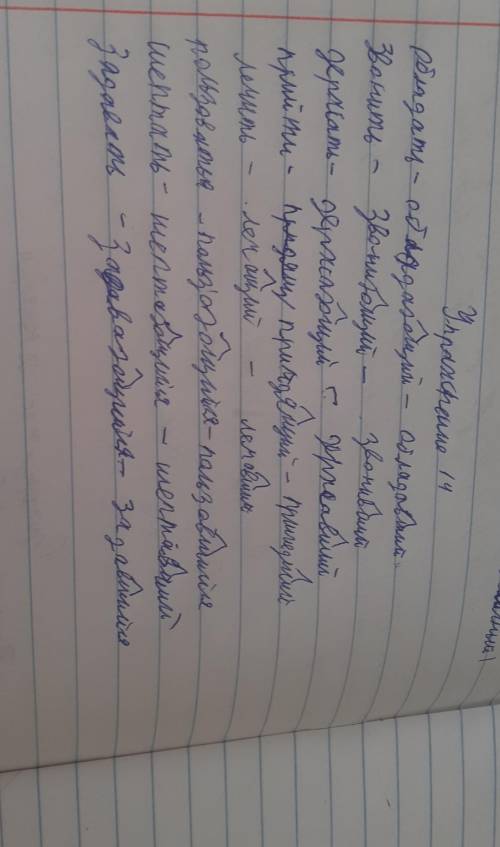 Упражнение 14
обладать - обладающий - обладавший
звонить - звонищий - звонивший
держать - держающий - державший
прийти - приходящий - пришедший
лечить - лечащий - лечивший
пользоваться - пользующийся - пользовавшийся
шептать - шептающийся - шептавший
задавать - задавающийся - задавшийся